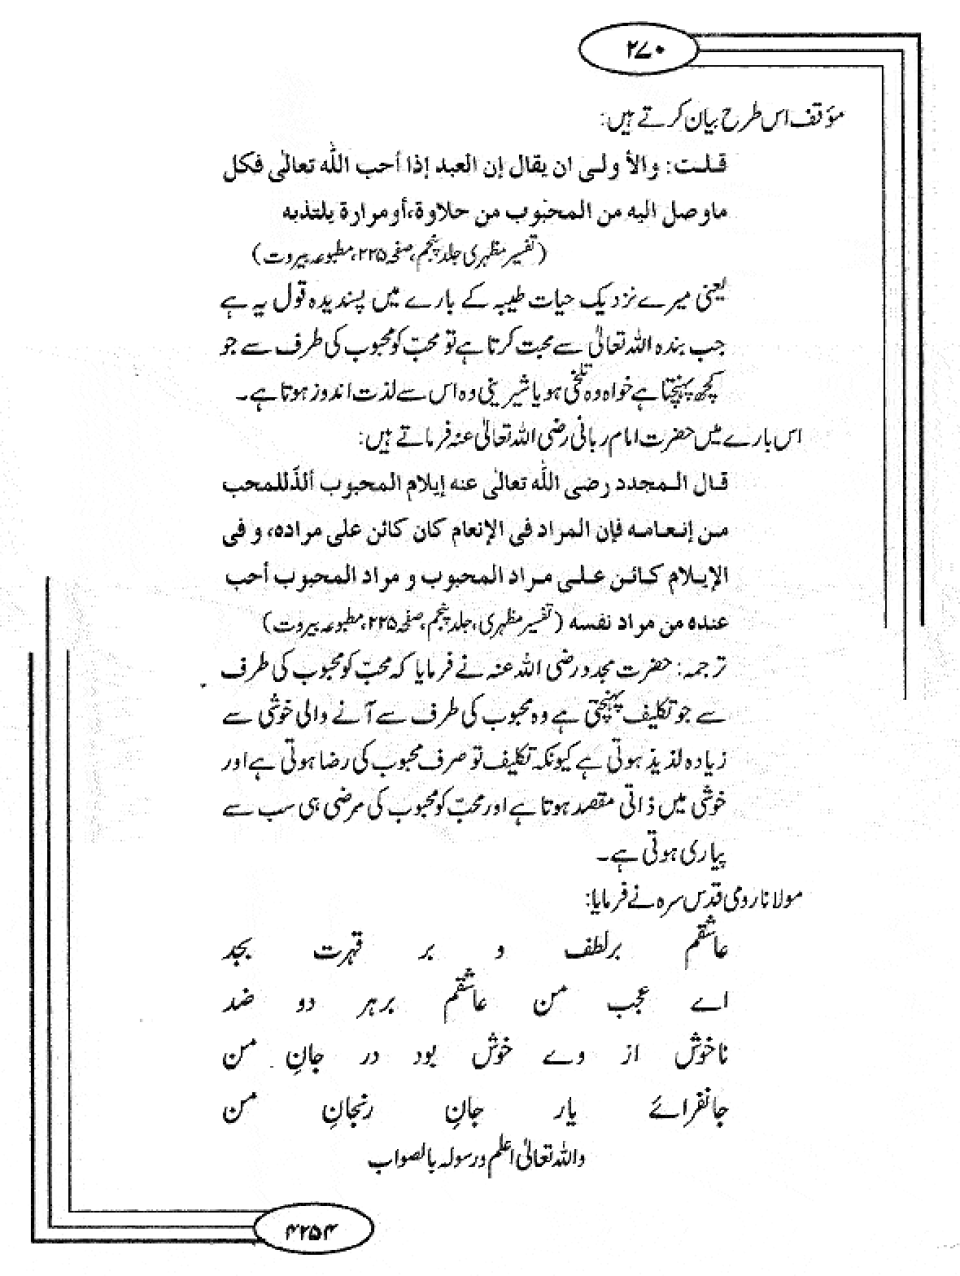 ۲۷۰
مؤقف اس طرح بیان کرتے ہیں:
قلت: والأ ولی ان یقال إن العبد إذا أحب اللّٰه تعالیٰ فکل
ماوصل الیه من المحبوب من حلاوة،أومرارة یلتذبه
(تفسیر مظہری جلد پنجم، صفحہ ۲۲۵، مطبوعہ بیروت)
یعنی میرے نزدیک حیات طیبہ کے بارے میں پسندیدہ قول یہ ہے
جب بندہ اللہ تعالیٰ سے محبت کرتا ہے تو محبّ کو محبوب کی طرف سے جو
کچھ پہنچتا ہے خواہ وہ تلخی ہو یا شیرینی وہ اس سے لذت اندوز ہوتا ہے۔
اس بارے میں حضرت امام ربانی رضی اللہ تعالیٰ عنہ فرماتے ہیں:
قال المجدد رضی اللّٰه تعالیٰ عنه إیلام المحبوب ألذّللمحب
من إنعامه فإن المراد فی الإنعام کان کائن علی مراده، و فی
الإیلام کائن علی مراد المحبوب و مراد المحبوب أحب
عنده من مراد نفسه (تفسیر مظہری، جلد پنجم، صفحہ ۲۲۵، مطبوعہ بیروت)
ترجمہ: حضرت مجدد رضی اللہ عنہ نے فرمایا کہ محبّ کو محبوب کی طرف
سے جو تکلیف پہنچتی ہے وہ محبوب کی طرف سے آنے والی خوشی سے
زیادہ لذیذ ہوتی ہے کیونکہ تکلیف تو صرف محبوب کی رضا ہوتی ہے اور
خوشی میں ذاتی مقصد ہوتا ہے اور محبّ کو محبوب کی مرضی ہی سب سے
پیاری ہوتی ہے۔
مولانا رومی قدس سرہ نے فرمایا:
عاشقم برلطف و بر قہرت بجد
اے عجب من عاشقم برہر دو ضد
ناخوش از وے خوش بود در جانِ من
جانفزائے یار جانِ رنجانِ من
واللہ تعالیٰ اعلم ورسولہ بالصواب
۴۲۵۴